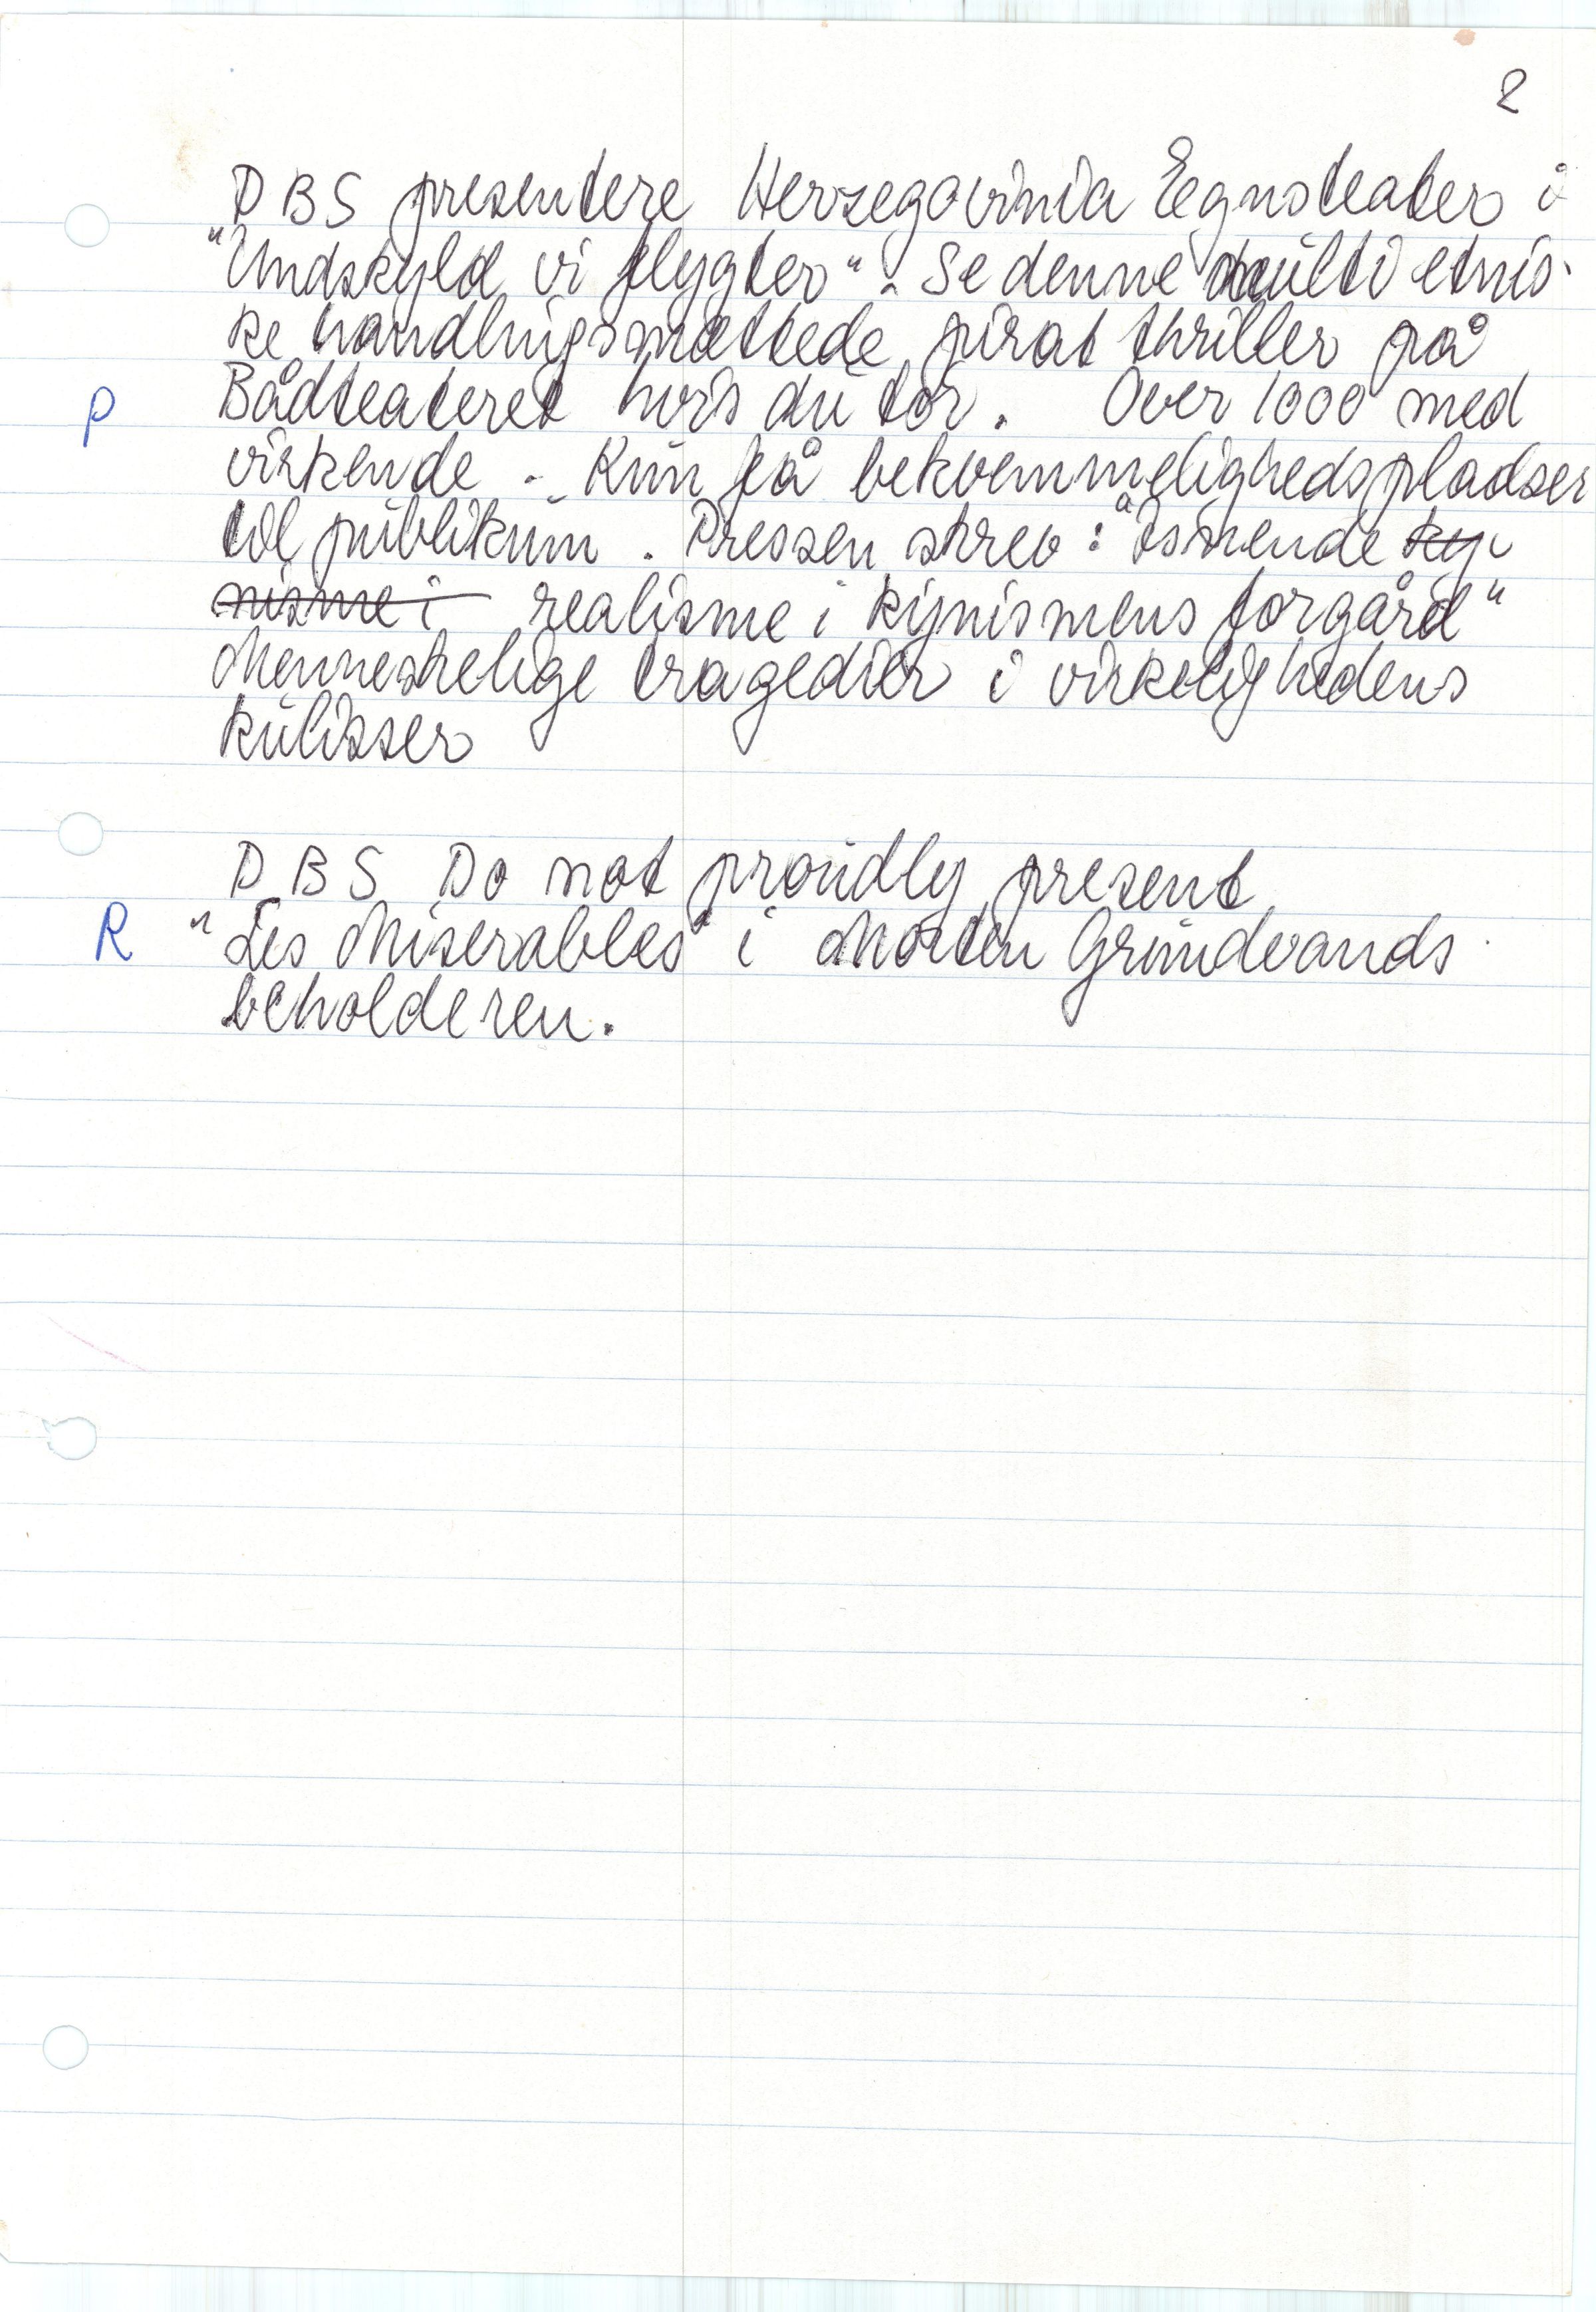 2
DBS presentere Herzegovinia Egnsteater i
"Undskyld vi flygter". Se denne multi etnis-
ke handlingsmættede pirat thriller på
P Bådteateret hvis du tør. Over 1000 med
virkende. Kun få bekvemmelighedspladser
til publikum. Pressen skrev: "Osinende ky-
nisme i realisme i kynismens forgård"
Menneskelige tragedier i virkelighedens
kulisser
DBS Do not proudly present
R "Les Miserables" i Morten Grundvands-
beholderen.